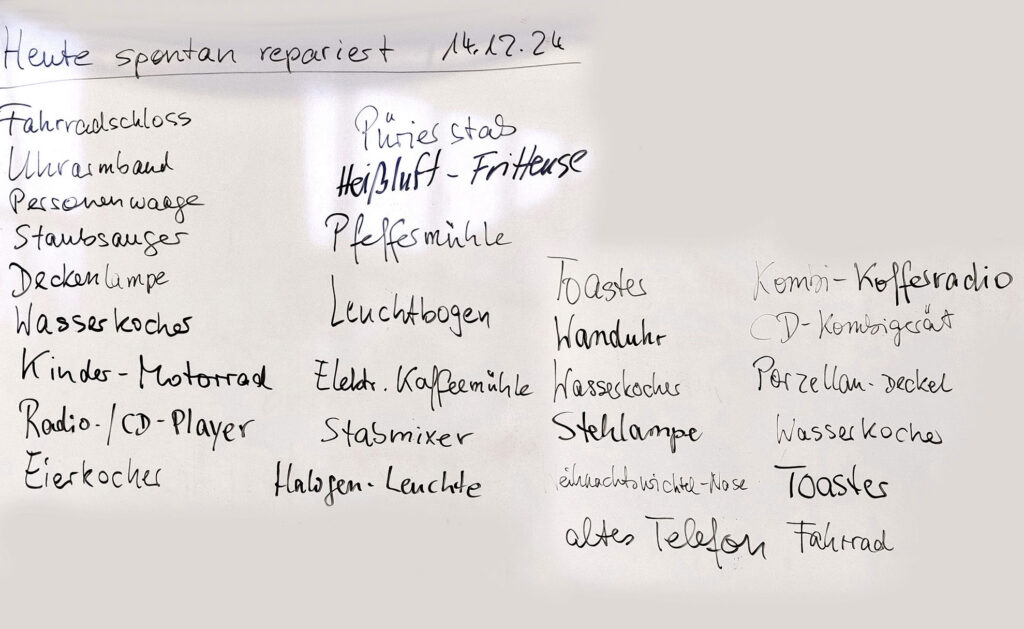 Heute spontan repariert 14.12.24
Fahrradschloss
Uhrarmband
Personenwaage
Staubsauger
Deckenlampe
Wasserkocher
Kinder-Motorrad
Radio-/CD-Player
Eierkocher
Pürierstab
Heißluft-Fritteuse
Pfeffermühle
Leuchtbogen
Elektr. Kaffeemühle
Stabmixer
Halogen-Leuchte
Toaster
Wanduhr
Wasserkocher
Stehlampe
eihnachtswichtel-Nase
altes Telefon
Kombi-Kofferradio
CD-Kombigerät
Porzellan-Deckel
Wasserkocher
Toaster
Fahrrad